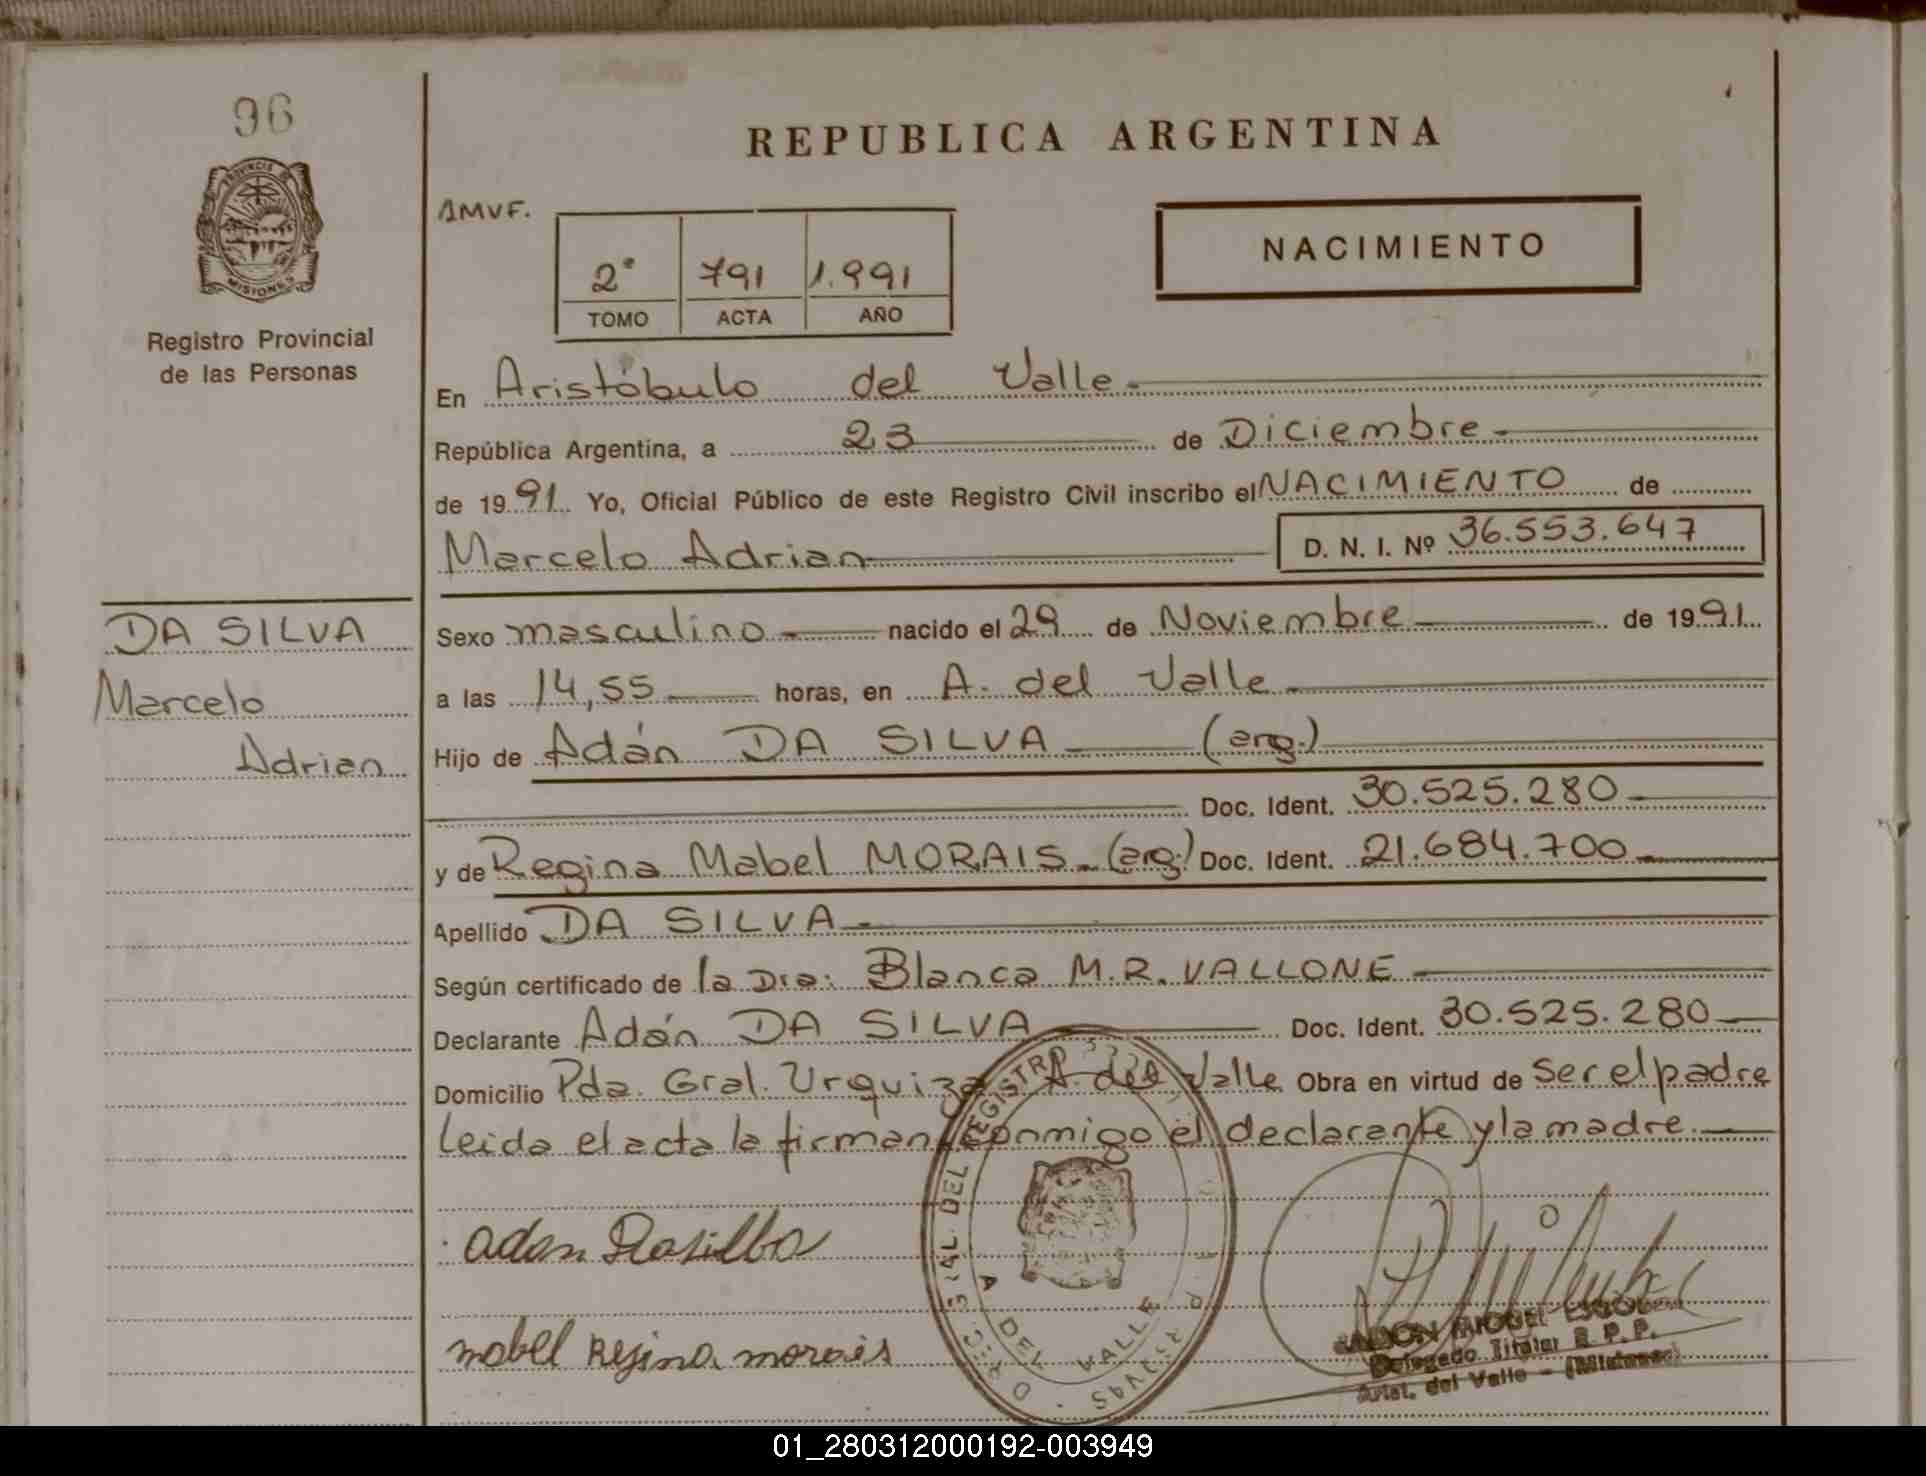 96
PROVINCIA DE
MISIONES
Registro Provincial
de las Personas
DA SILVA
Marcelo
Adrian
REPUBLICA ARGENTINA
AMVF.
2° 791 1.991
TOMO ACTA AÑO
NACIMIENTO
En Aristóbulo del Valle
República Argentina, a 23 de Diciembre
de 1991 Yo, Oficial Público de este Registro Civil inscribo el NACIMIENTO de
Marcelo Adrian D. N. I. Nº 36.553.647
Sexo masculino nacido el 29 de Noviembre de 1991
a las 14,55 horas, en A. del Valle
Hijo de Adán DA SILVA (arg.)
Doc. Ident. 30.525.280
y de Regina Mabel MORAIS (arg.) Doc. Ident. 21.684.700
Apellido DA SILVA
Según certificado de la Dra: Blanca M.R. VALLONE
Declarante Adán DA SILVA Doc. Ident. 30.525.280
Domicilio Pda. Gral. Urquiza A. del Valle Obra en virtud de ser el padre
Leida el acta la firman conmigo el declarante y la madre.
adan Dasilba
mabel Regina morais
DEL REGISTRO
A DEL VALLE
MIGUEL
Delegado Titular R. P. P.
Arist. del Valle - (Misiones)
01_280312000192-003949